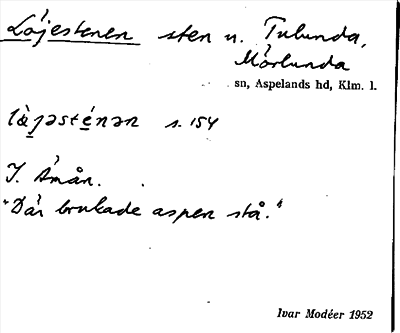 Löjestenen sten n. Tulunda,
Mörlunda
sn, Aspelands hd, Klm. l.
lὰjəsténən s. 154
I. Åmån.
"Där brukade aspen stå."
Ivar Modéer 1952